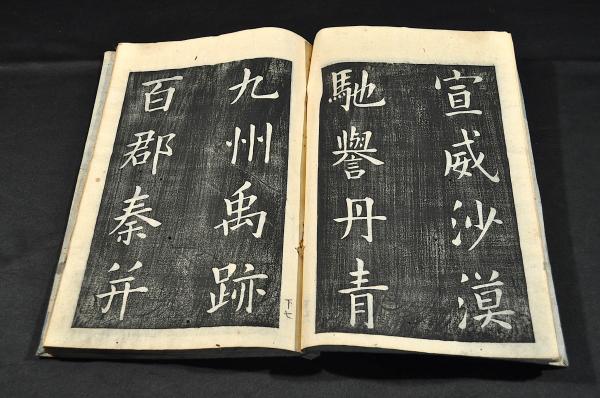 宣威沙漠
馳譽丹青
九州禹跡
百郡秦并
下七